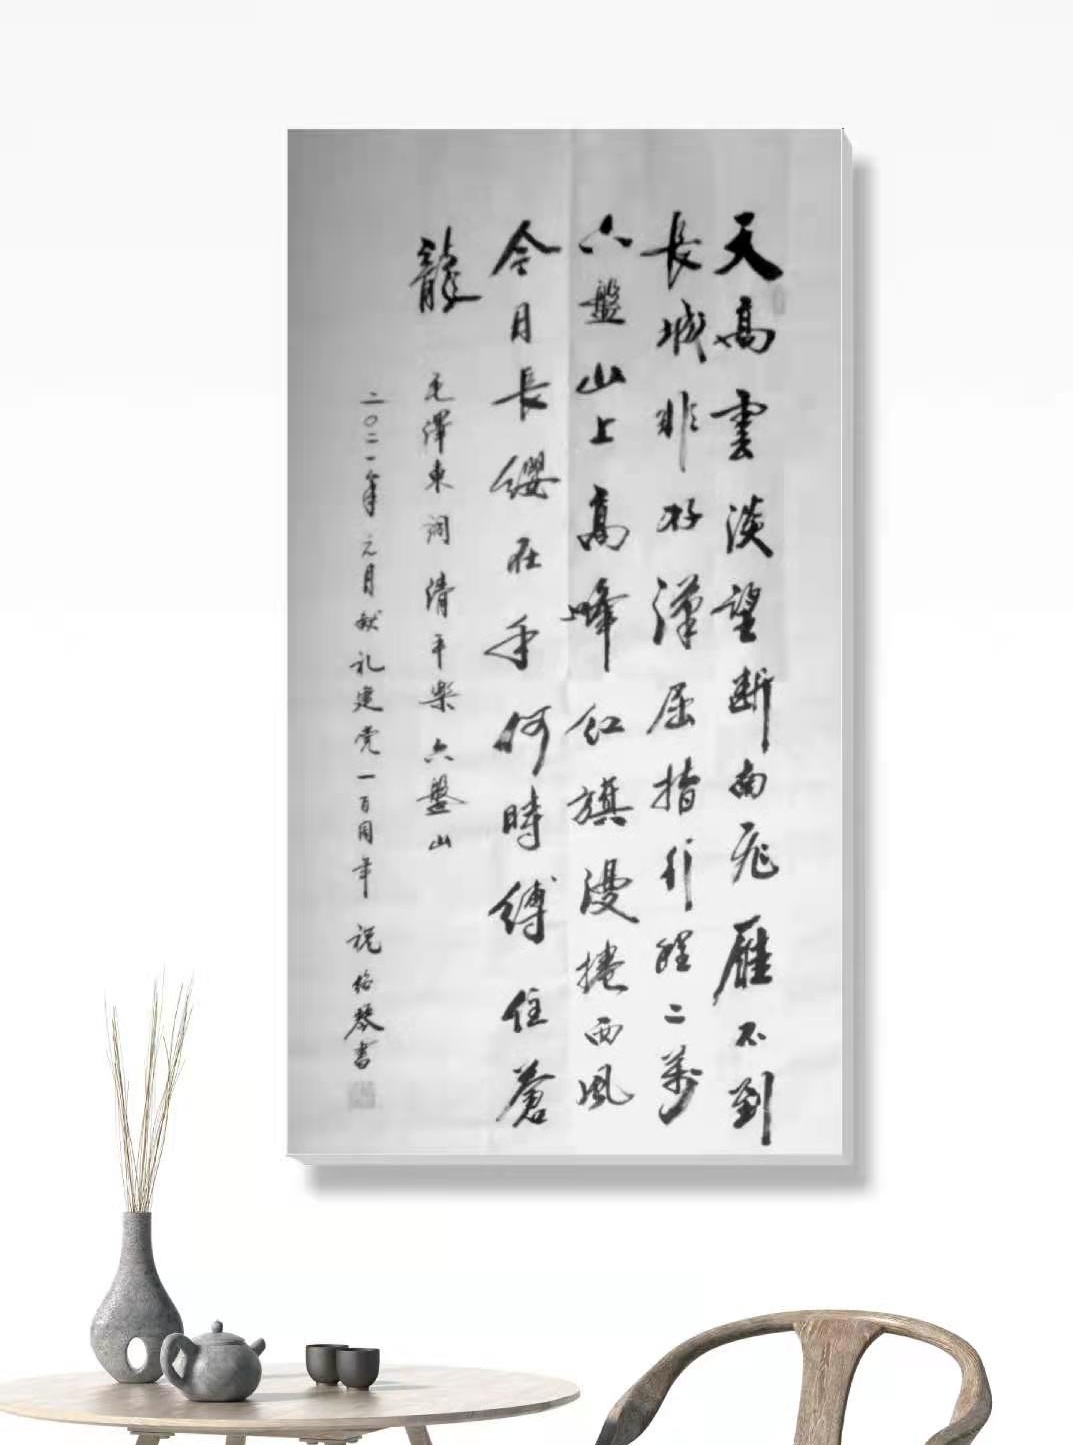 天高雲淡望斷南飛雁不到
長城非好漢屈指行程二萬
六盤山上高峰红旗漫捲西風
今日長纓在手何時縛住蒼
龍 毛澤東詞 清平樂 六盤山
二〇二一年元月献礼建党一百周年 祝琴書